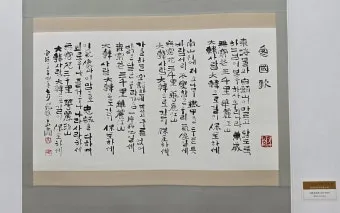 愛國歌
東海물과 白頭山이 마르고 닳도록
하느님이 保佑하사 우리나라 萬歲
無窮花 三千里 華麗江山
大韓사람 大韓으로 길이 保全하세
南山 위에 저 소나무 鐵甲을 두른 듯
바람서리 不變함은 우리 氣像일세
無窮花 三千里 華麗江山
大韓사람 大韓으로 길이 保全하세
가을하늘 空豁한데 높고 구름없이
밝은 달은 우리 가슴 一片丹心일세
無窮花 三千里 華麗江山
大韓사람 大韓으로 길이 保全하세
이 氣像과 이 맘으로 忠誠을 다하여
괴로우나 즐거우나 나라사랑하세
無窮花 三千里 華麗江山
大韓사람 大韓으로 길이 保全하세